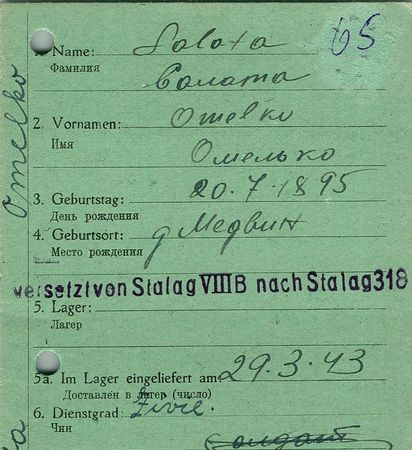 65
1. Name: Salata
Фамилия Салата
2. Vornamen: Omelko
Имя Омелько
3. Geburtstag: 20.7.1895
День рождения
4. Geburtsort: д Медвин
Место рождения
versetzt von Stalag VIII B nach Stalag 318
5. Lager:
Лагер
5a. Im Lager eingeliefert am: 29.3.43
Доставлен в лагер (число)
6. Dienstgrad: Zivil.
Чин солдат
Omelko